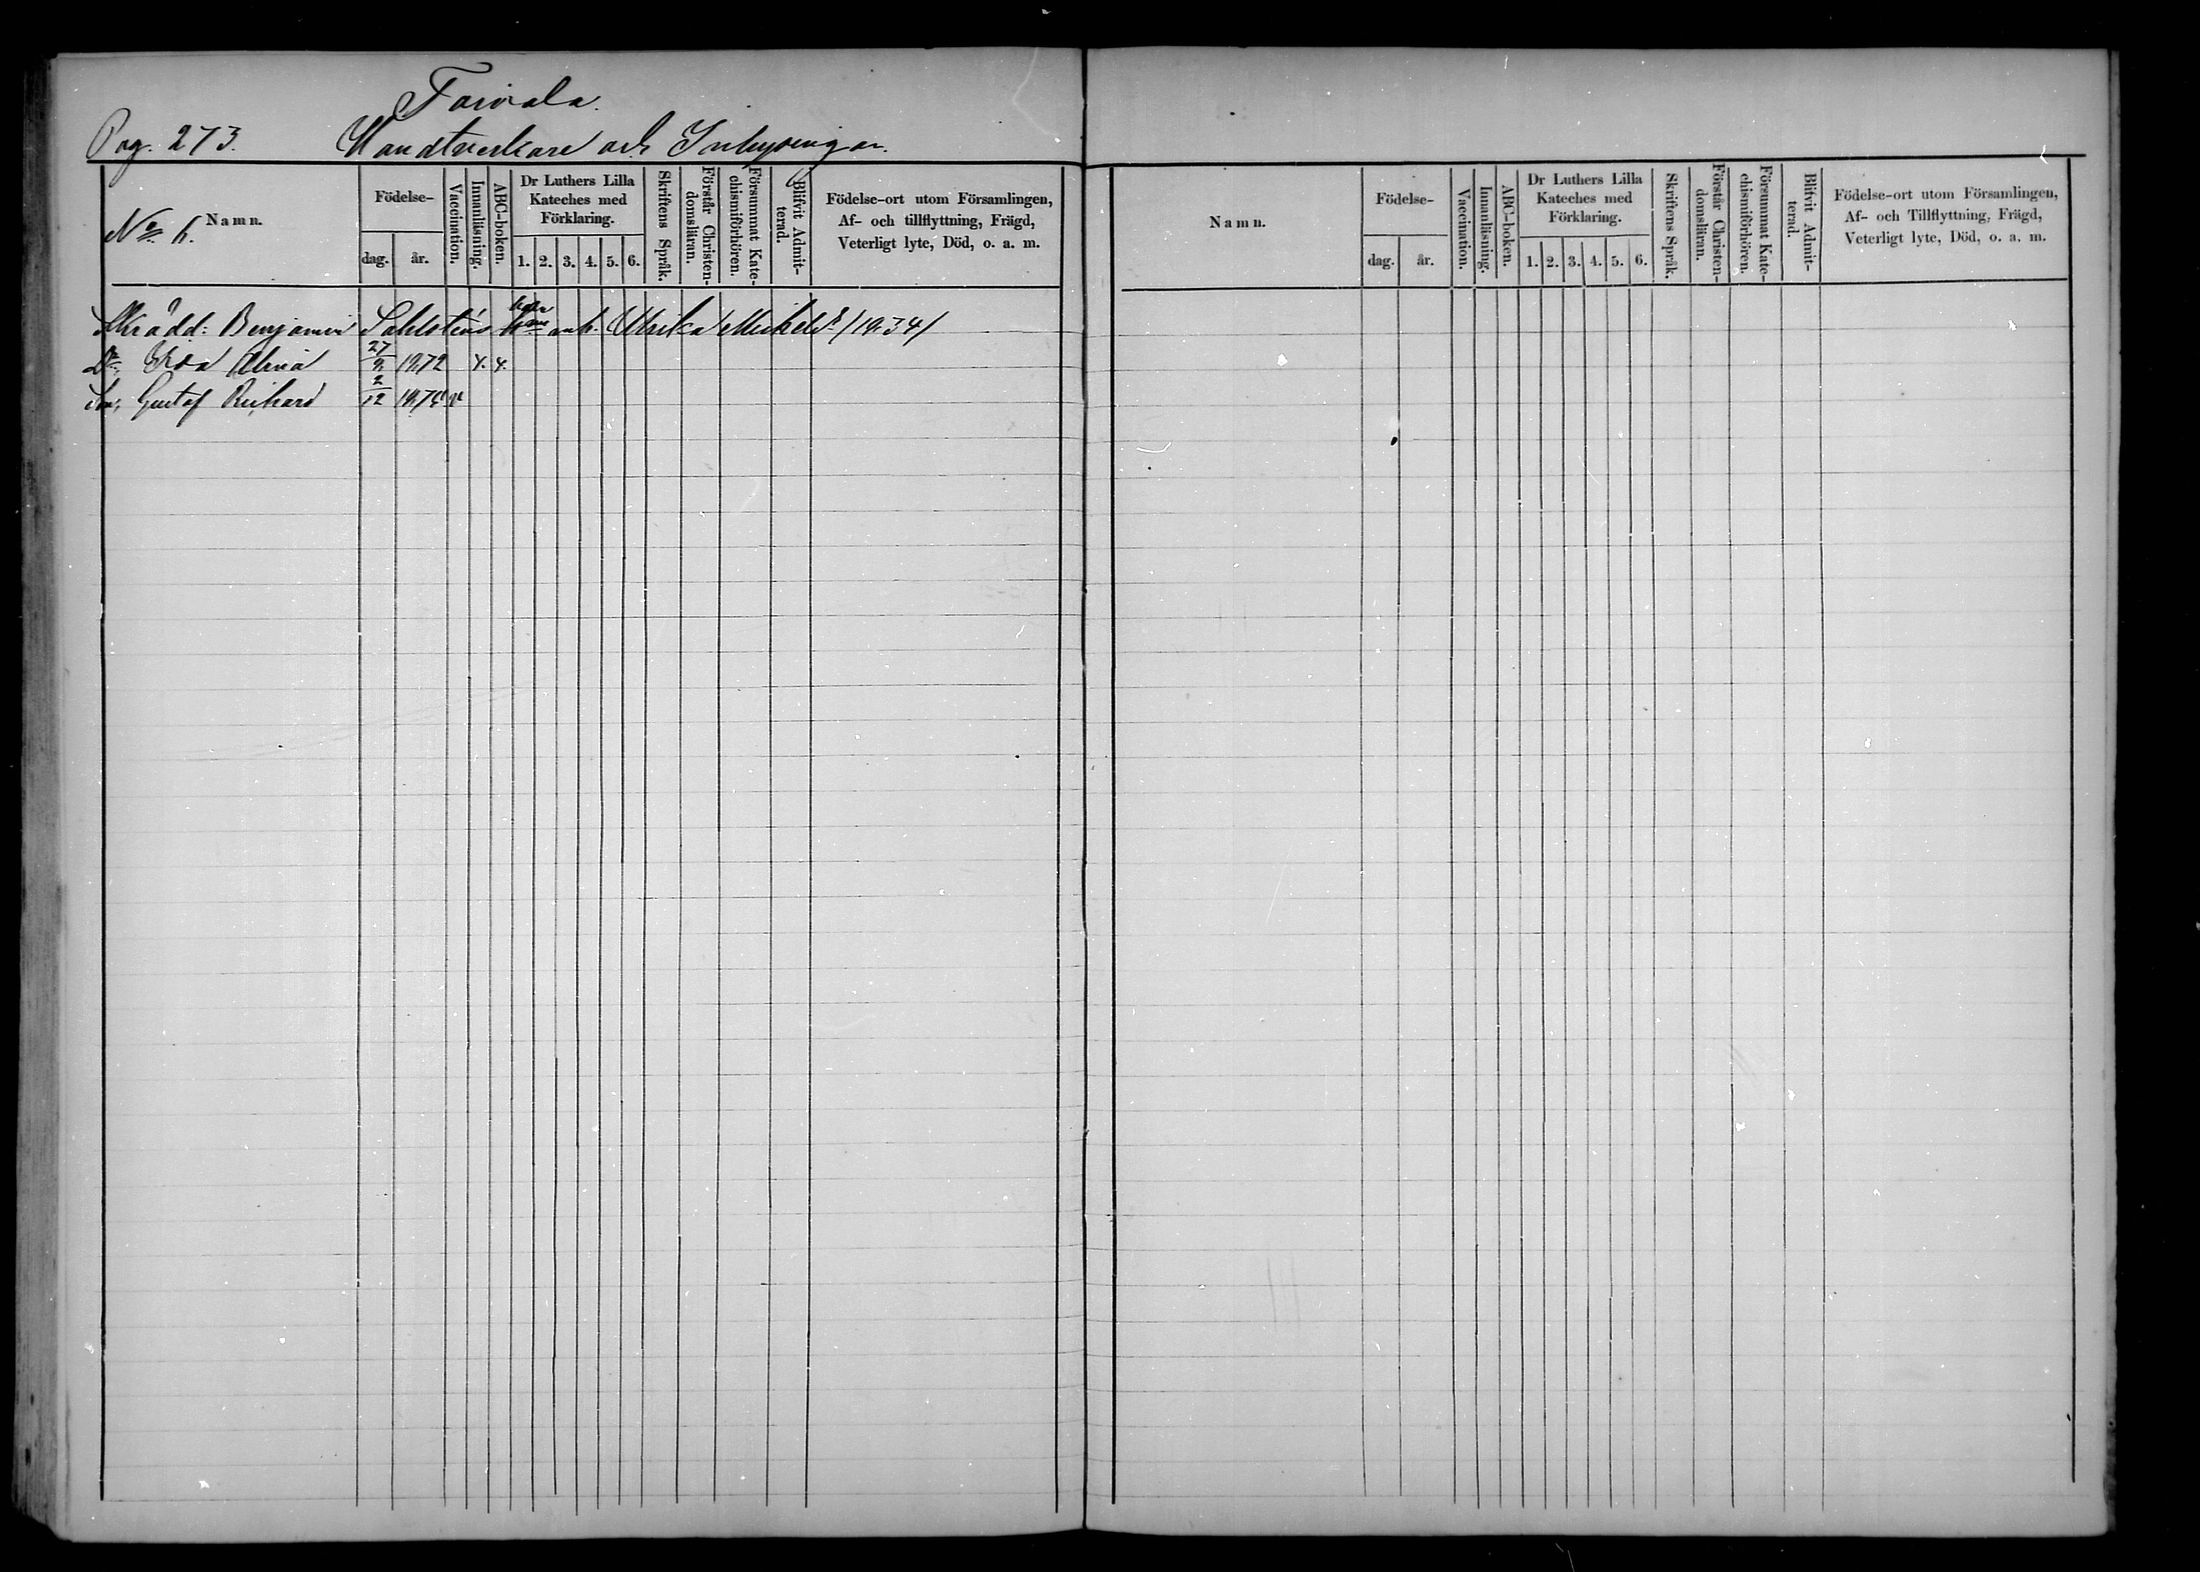 Toivala.
Pag. 273. Handtverkare och Inhysingar.
No 6. Namn.
Födelse-
dag. år.
Vaccination.
Innanläsning.
ABC-boken.
Dr Luthers Lilla
Kateches med
Förklaring.
1. 2. 3. 4. 5. 6.
Skriftens Språk.
Förstår Christen-
domsläran.
Försummat Kate-
chismiförhören.
Blifvit Admit-
terad.
Födelse-ort utom Församlingen,
Af- och tillflyttning, Frägd,
Veterligt lyte, Död, o. a. m.
Skrädd: Benjamin Sahlstens barn enk. Ulrika Michelsdr /1834/
Dr, Ida Alina 27/9 1872 x. x.
Son, Gustaf Rickard 2/12 1875 v
Namn.
Födelse-
dag. år.
Vaccination.
Innanläsning.
ABC-boken.
Dr Luthers Lilla
Kateches med
Förklaring.
1. 2. 3. 4. 5. 6.
Skriftens Språk.
Förstår Christen-
domsläran.
Försummat Kate-
chismiförhören.
Blifvit Admit-
terad.
Födelse-ort utom Församlingen,
Af- och Tillflyttning, Frägd,
Veterligt lyte, Död, o. a. m.